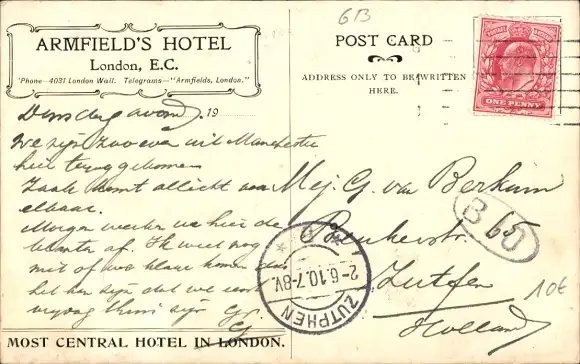 ARMFIELD'S HOTEL
London, E.C.
'Phone—4031 London Wall. Telegrams—"Armfields, London."
Dinsdag avond 19
We zijn zooeven uit Manchester
hier terug gekomen
Zaak komt allicht voor
elkaar.
Morgen werken we hier de
klanten af. Ik weet nog
niet of we klaar komen
het kan zijn dat we eerst
vrijdag thuis zijn
MOST CENTRAL HOTEL IN LONDON.
6B
POST CARD
ADDRESS ONLY TO BE WRITTEN
HERE.
POSTAGE REVENUE
ONE PENNY
Mej. G. van Berkum
65
Zutfen
Holland
B 60
2-6.10.7-8V.
ZUTPHEN
10€